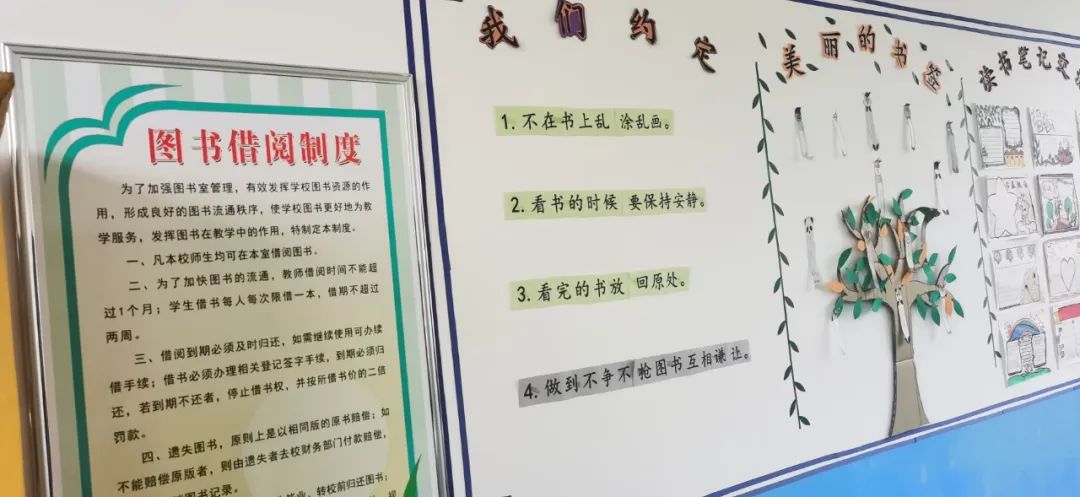 图书借阅制度
为了加强图书室管理，有效发挥学校图书资源的作
用，形成良好的图书流通秩序，使学校图书更好地为教
学服务，发挥图书在教学中的作用，特制定本制度。
一、凡本校师生均可在本室借阅图书。
二、为了加快图书的流通，教师借阅时间不能超
过1个月；学生借书每人每次限借一本，借期不超过
两周。
三、借阅到期必须及时归还，如需继续使用可办续
借手续；借书必须办理相关登记签字手续，到期必须归
还，若到期不还者，停止借书权，并按所借书价的二倍
罚款。
四、遗失图书，原则上是以相同版的原书赔偿；如
不能赔偿原版者，则由遗失者去校财务部门付款赔偿，
图书记录。
转校前归还图书；
我们约定
1.不在书上乱 涂乱画。
2.看书的时候 要保持安静。
3.看完的书放 回原处。
4.做到不争不 抢图书互相谦 让。
美丽的书签
读书笔记